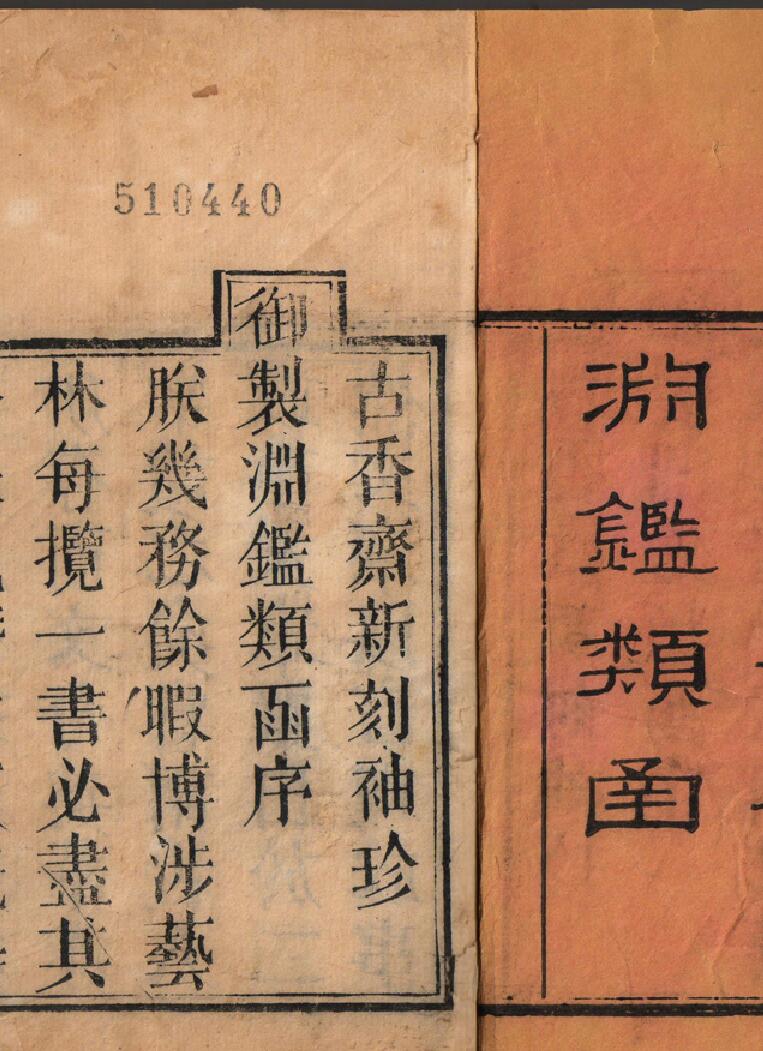 淵鑑類函
古香齋新刻袖珍
御製淵鑑類函序
朕幾務餘暇博涉藝
林每攬一書必盡其
510440